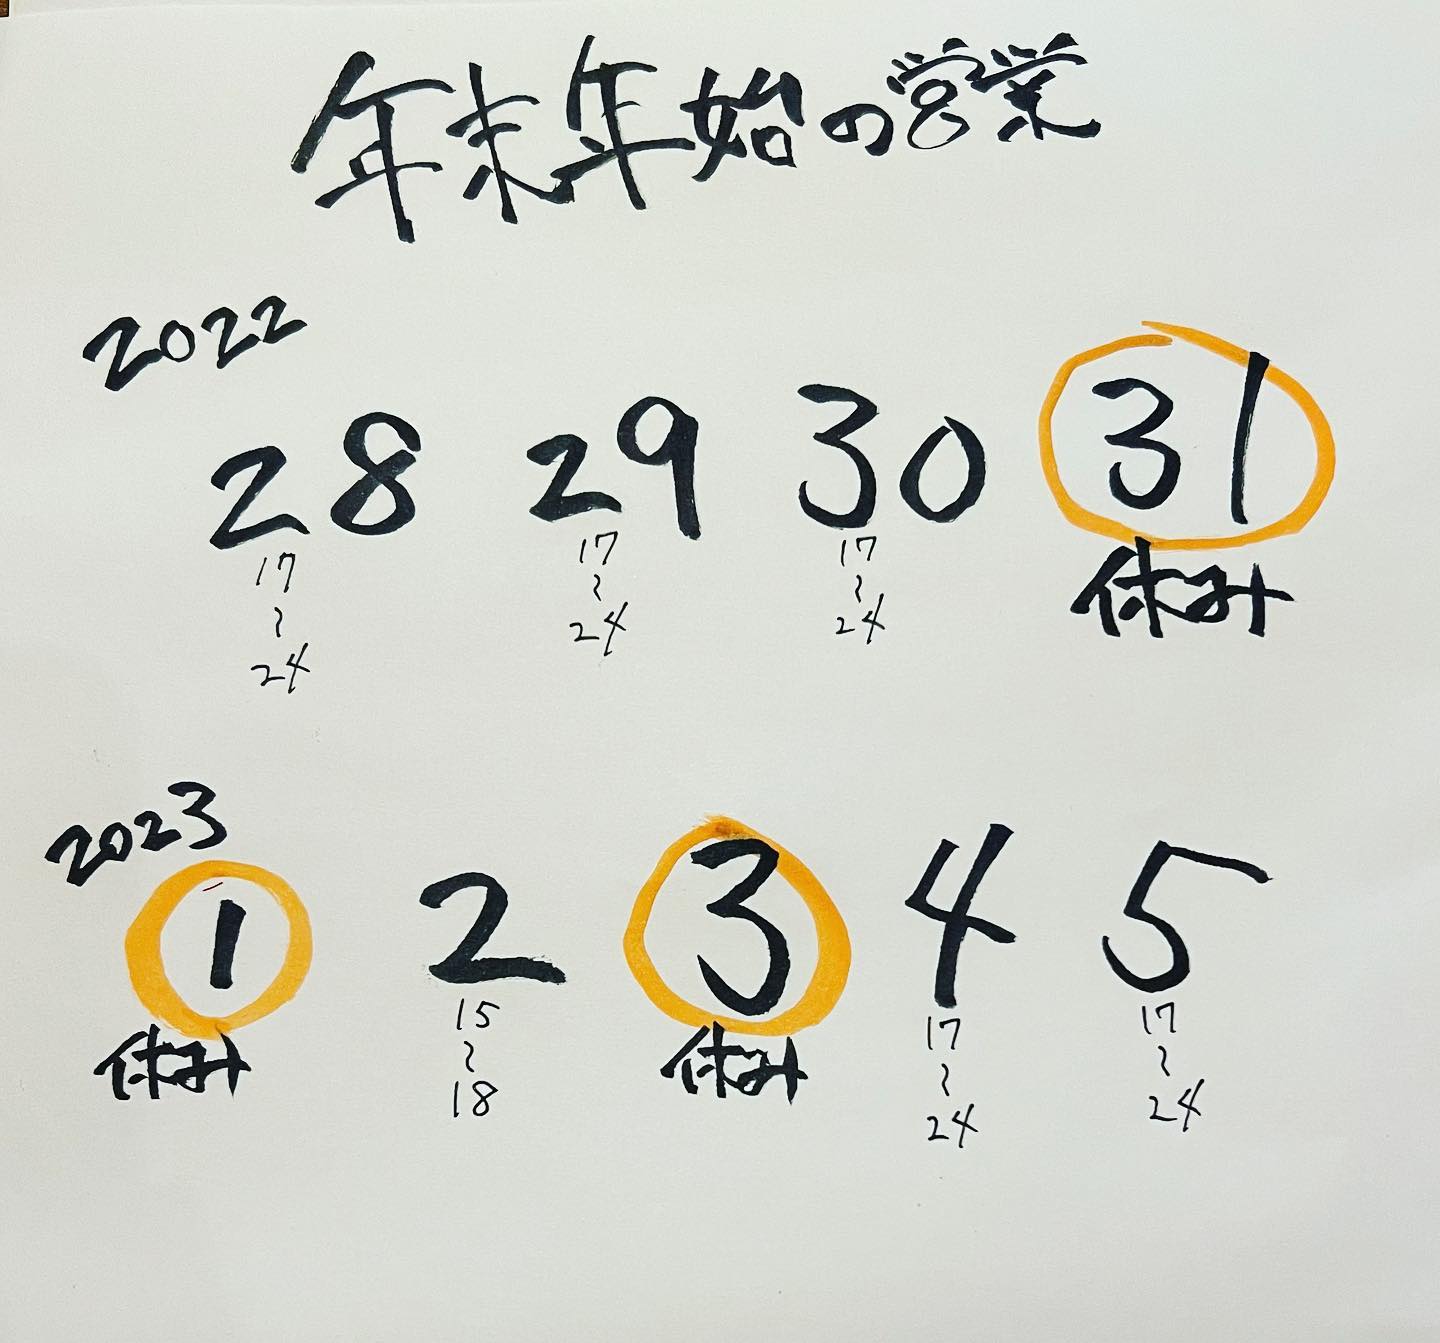 年末年始の営業
2022
28 29 30 31
17 17 17 休み
~ ~ ~
24 24 24
2023
1 2 3 4 5
休み 15 休み 17 17
~ ~ ~
18 24 24